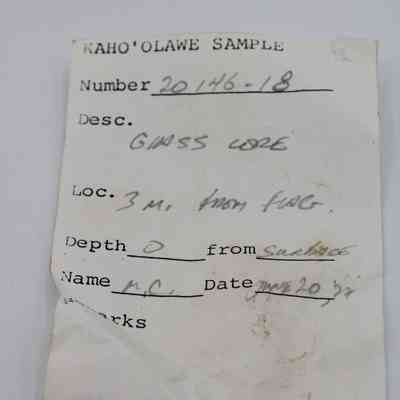 KAHO'OLAWE SAMPLE
Number 20146-18
Desc.
GLASS CORE
Loc. 3 M. from FLAG.
Depth 0 from SURFACE
Name M.C. Date June 20
Remarks